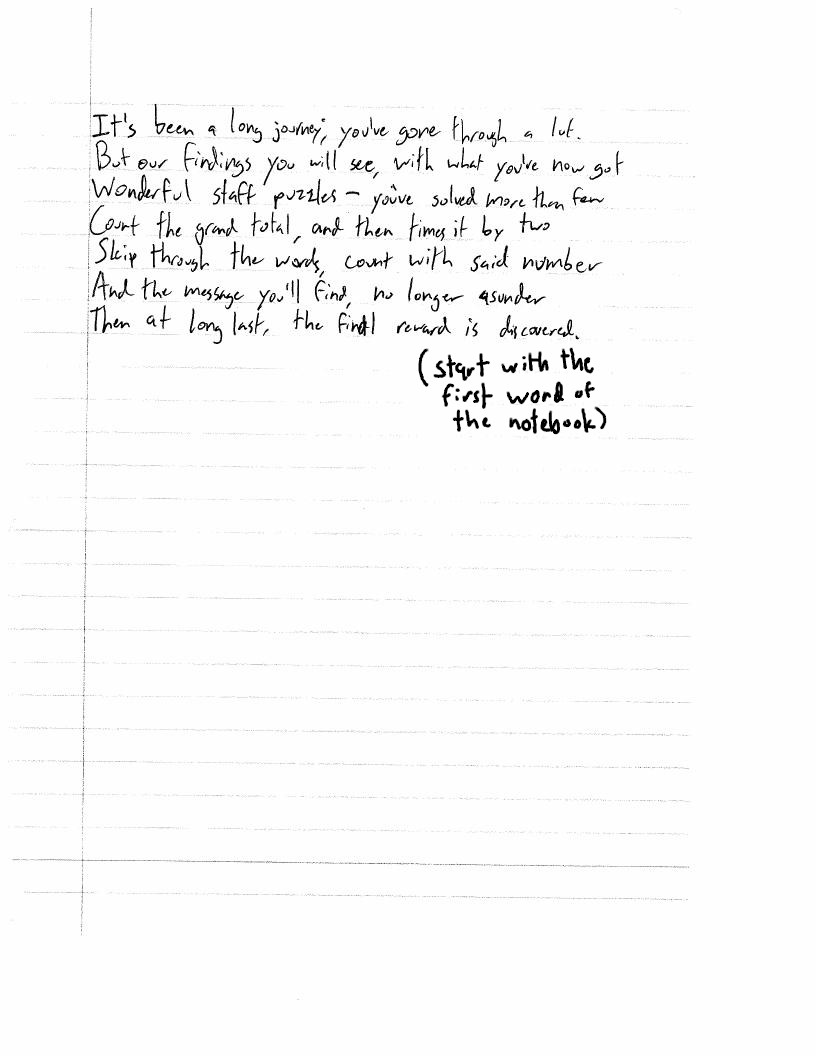 It's been a long journey; you've gone through a lot.
But our findings you will see, with what you've now got
Wonderful staff puzzles - you've solved more than few
Count the grand total, and then times it by two
Skip through the words, count with said number
And the message you'll find, no longer asunder
Then at long last, the final reward is discovered.
(start with the
first word of
the notebook)